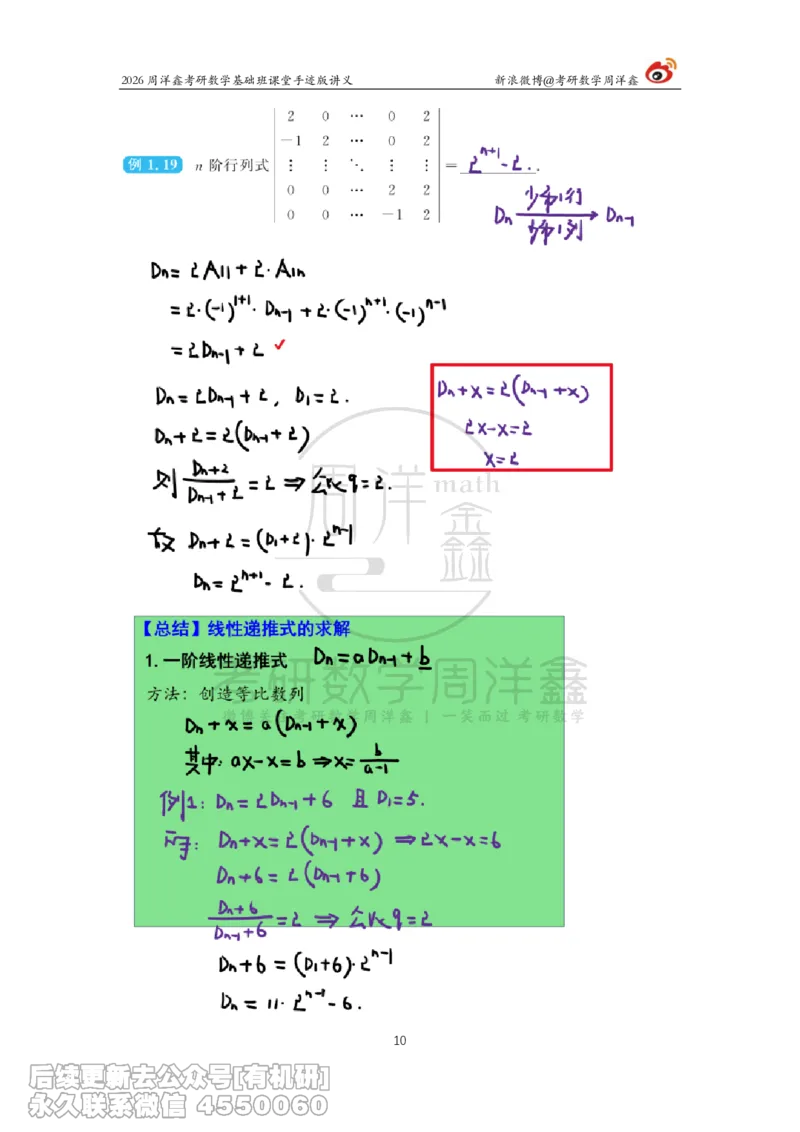 2026周洋鑫考研数学基础班课堂手迹版讲义 新浪微博@考研数学周洋鑫
2 0 ⋯ 0 2
−1 2 ⋯ 0 2
例 1.19 n 阶行列式 ⋮ ⋮ ⋱ ⋮ ⋮ = 2^{n+1}-2.
0 0 ⋯ 2 2
0 0 ⋯ −1 2
少第1行
Dn → Dn-1
少第1列
Dn = 2A11 + 2·A1n
= 2·(-1)^{1+1}·Dn-1 + 2·(-1)^{n+1}·(-1)^{n-1}
= 2Dn-1 + 2 ✓
Dn = 2Dn-1 + 2, D1 = 2.
Dn + 2 = 2(Dn-1 + 2)
则 (Dn+2)/(Dn-1+2) = 2 ⇒ 公比 q = 2.
故 Dn + 2 = (D1+2)·2^{n-1}
Dn = 2^{n+1} - 2.
Dn + x = 2(Dn-1 + x)
2x - x = 2
x = 2
周洋 math
鑫
【总结】线性递推式的求解
1.一阶线性递推式 Dn = aDn-1 + b
方法：创造等比数列
Dn + x = a(Dn-1 + x)
其中: ax - x = b ⇒ x = b/(a-1)
例1: Dn = 2Dn-1 + 6 且 D1 = 5.
Dn + x = 2(Dn-1 + x) ⇒ 2x - x = 6
Dn + 6 = 2(Dn-1 + 6)
(Dn+6)/(Dn-1+6) = 2 ⇒ 公比 q = 2
Dn + 6 = (D1+6)·2^{n-1}
Dn = 11·2^{n-1} - 6.
考研数学周洋鑫
考研数学周洋鑫 | 一笑而过 考研数学
10
后续更新去公众号[有机研]
永久联系微信 4550060